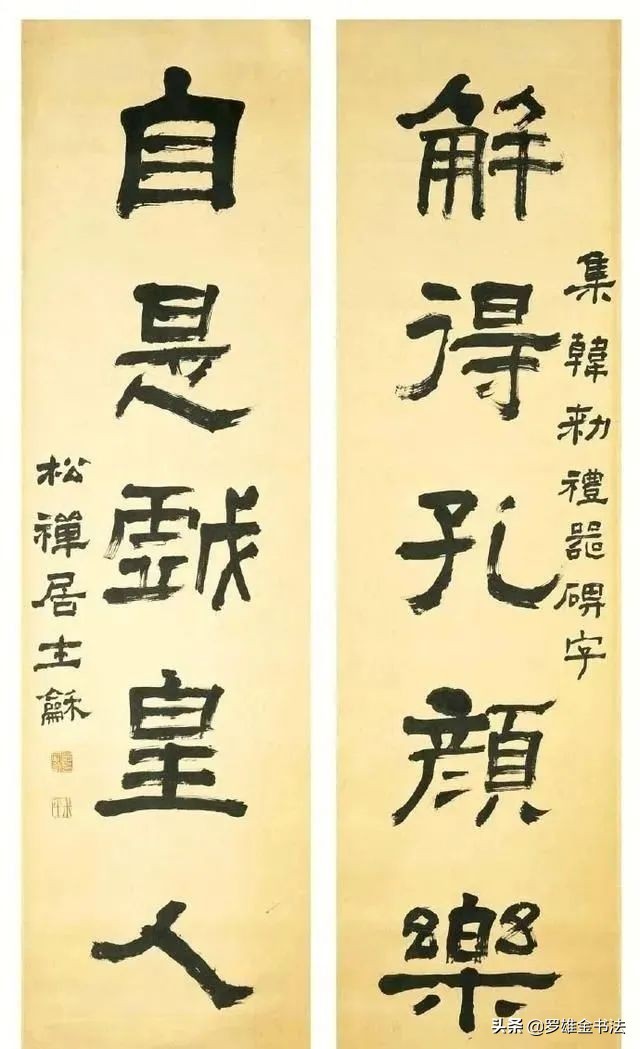 集韓勑禮器碑字
解得孔顏樂
自是戯皇人
松禪居士龢
头条 @罗雄金书法